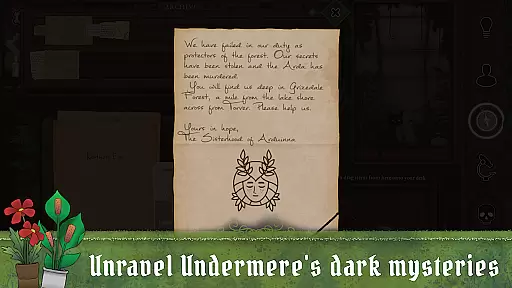 We have failed in our duty as
protectors of the forest. Our secrets
have been stolen and the Arda has
been murdered.
You will find us deep in Grizedale
Forest, a mile from the lake shore
across from Torver. Please help us.
Yours in hope,
The Sisterhood of Arduinna
Unravel Undermere's dark mysteries